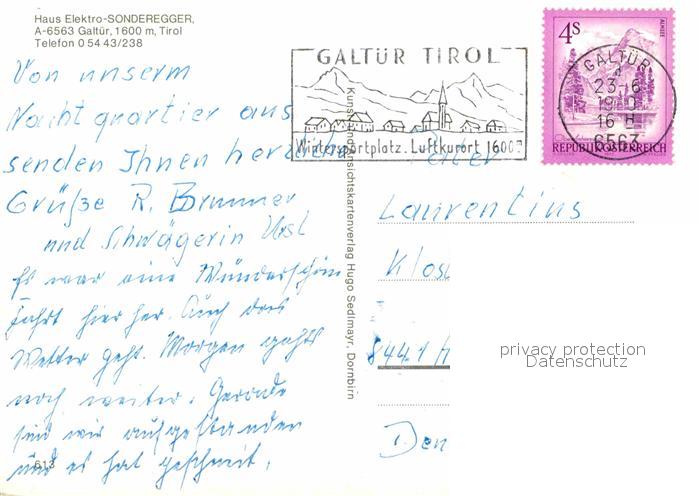 Haus Elektro-SONDEREGGER,
A-6563 Galtür, 1600 m, Tirol
Telefon 0 54 43/238
GALTÜR TIROL
Wintersportplatz . Luftkurort 1600
4S
ALMSEE
REPUBLIK ÖSTERREICH
GALTÜR
23.-6
16 H
6563
Von unserm
Nachtquartier aus
senden Ihnen herzliche
Grüße R. Brunner
und Schwägerin
Es war eine Wunderschöne
Fahrt hier her. Auch das
Wetter geht. Morgen gehts
noch weiter. Gerade
sind wir aufgestanden
und es hat geschneit.
613
Kunst- und Ansichtskartenverlag Hugo Sedlmayr, Dornbirn
Pater
Laurentius
Klos
8441 A
Den
privacy protection
Datenschutz